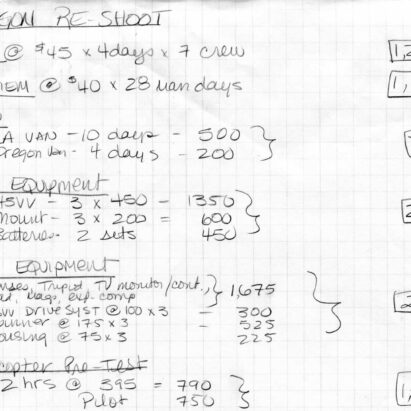 EGON RE-SHOOT
@ $45 x 4 days x 7 crew
DIEM @ $40 x 28 man days
VAN - 10 days - 500
Oregon Van - 4 days - 200
EQUIPMENT
45VV - 3 x 450 - 1350
Mount - 3 x 200 = 600
Batteries - 2 sets 450
EQUIPMENT
nses, Tripod, TV monitor/cont., 1,675
mags, exp. comp
VV DRIVE SYST @ 100 x 3 = 300
unner @ 175 x 3 = 525
ousing @ 75 x 3 225
copter Pre-Test
2 hrs @ 395 = 790
Pilot 750